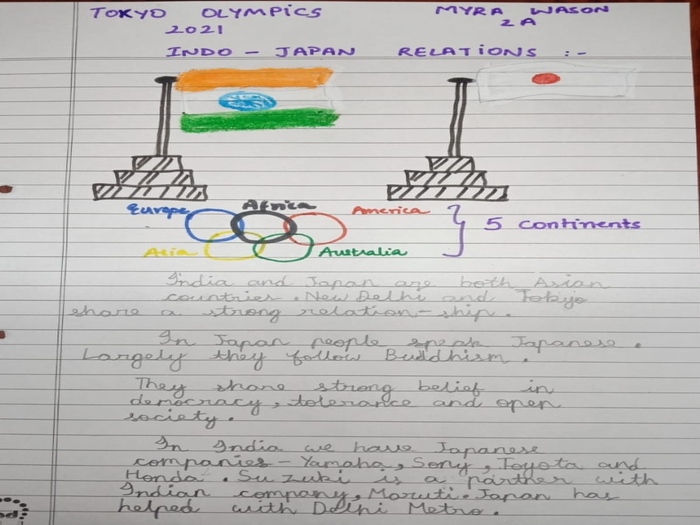 TOKYO OLYMPICS
2021
MYRA WASON
2A
INDO - JAPAN RELATIONS :-
Europe Africa America
Asia Australia
5 continents
India and Japan are both Asian
countries. New Delhi and Tokyo
share a strong relation-ship.
In Japan people speak Japanese.
Largely they follow Buddhism.
They share strong belief in
democracy, tolerance and open
society.
In India we have Japanese
companies - Yamaha, Sony, Toyota and
Honda. Suzuki is a partner with
Indian company, Maruti. Japan has
helped with Delhi Metro.